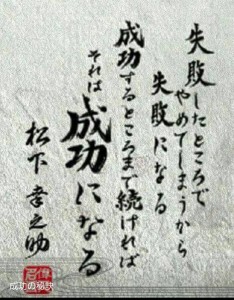 失敗したところで
やめてしまうから
失敗になる
成功するところまで続ければ
それは
成功になる
松下幸之助
成功の秘訣